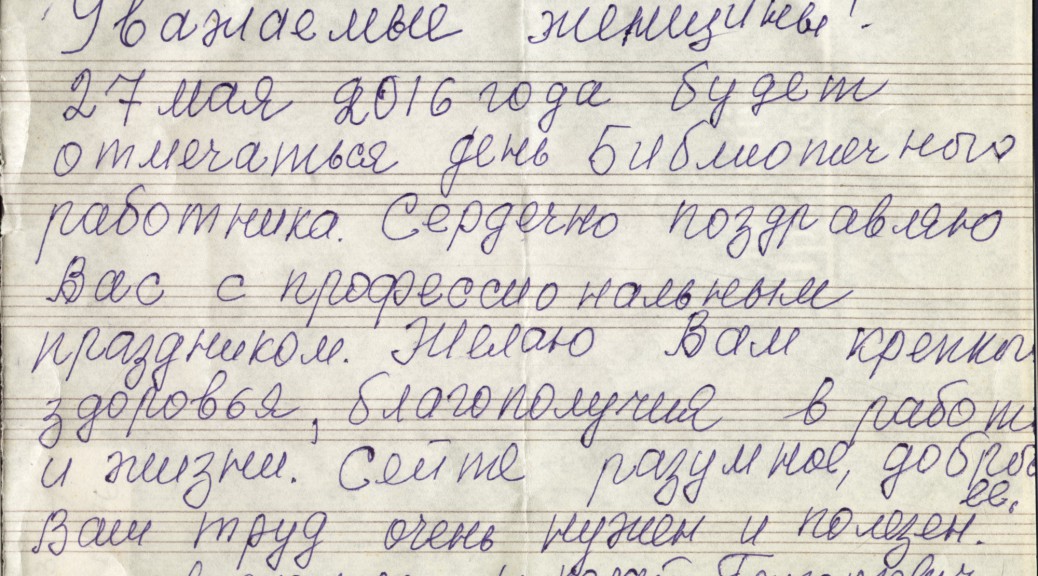 Уважаемые женщины!
27 мая 2016 года будет
отмечаться день Библиотечного
работника. Сердечно поздравляю
Вас с профессиональным
праздником. Желаю Вам крепког
здоровья, благополучия в работ
и жизни. Сейте разумное, доброе
ее.
Ваш труд очень нужен и полезен.